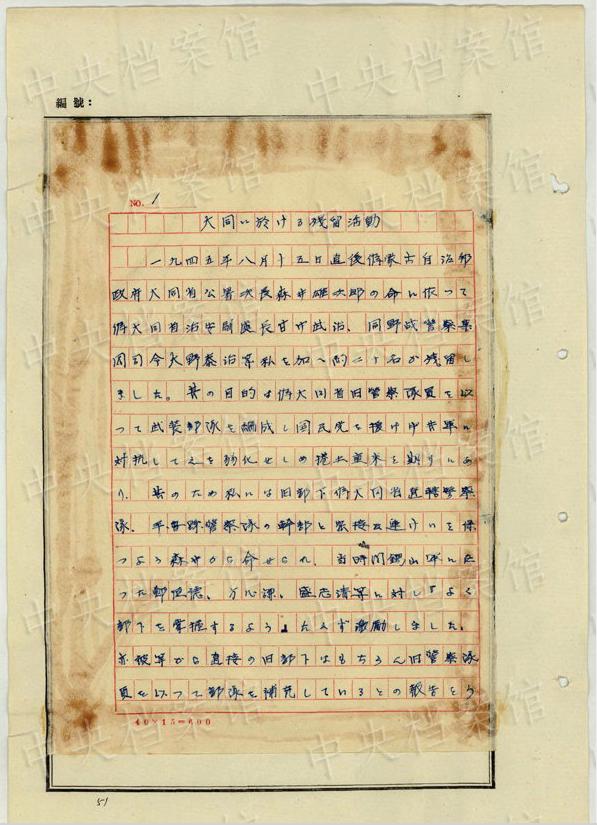 中央档案馆
編號：
No. 1
大同に於ける残留活動
一九四五年八月十五日直後偽蒙古自治邦
政府大同省公署次長森 雄次郎の命に依って
偽大同省治安 長 中武治、同野战警察集
団司令大野泰治 私を加へ約二十名が残留し
ました。其の目的は偽大同省旧警察隊員を以
って武装部隊を編成し国民党を援け
対抗して之を弱化せしめ捲土重来を期すにあ
り、其のため私には旧部下偽大同省直轄警察
隊、 警察隊の幹部と緊接な連けいを保
つよう森 から命ぜられ、当時
った 、 、 に対しよく
部下を掌握するよう、たえず激励しました。
亦彼等から直接の旧部下はもちろん旧警察隊
員を以って部隊を補充しているとの報告をう
40×15=600
51